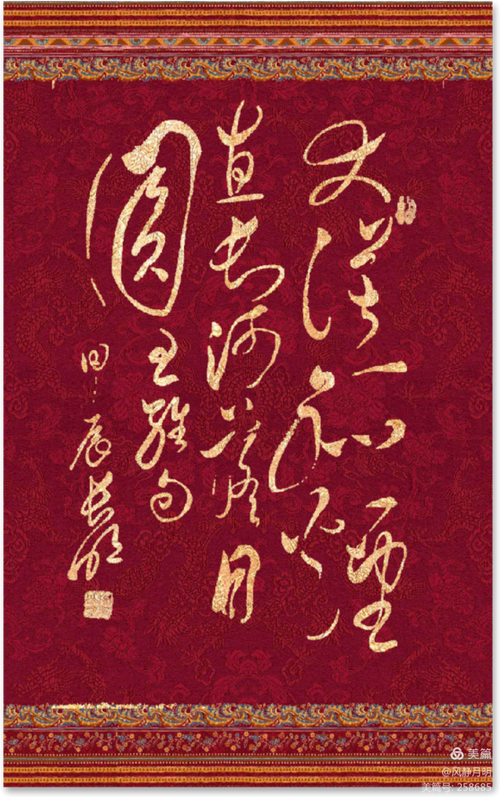 大漠孤煙
直長河落日
圓王維句
甲辰
美篇
@风静月明
美篇号: 258685